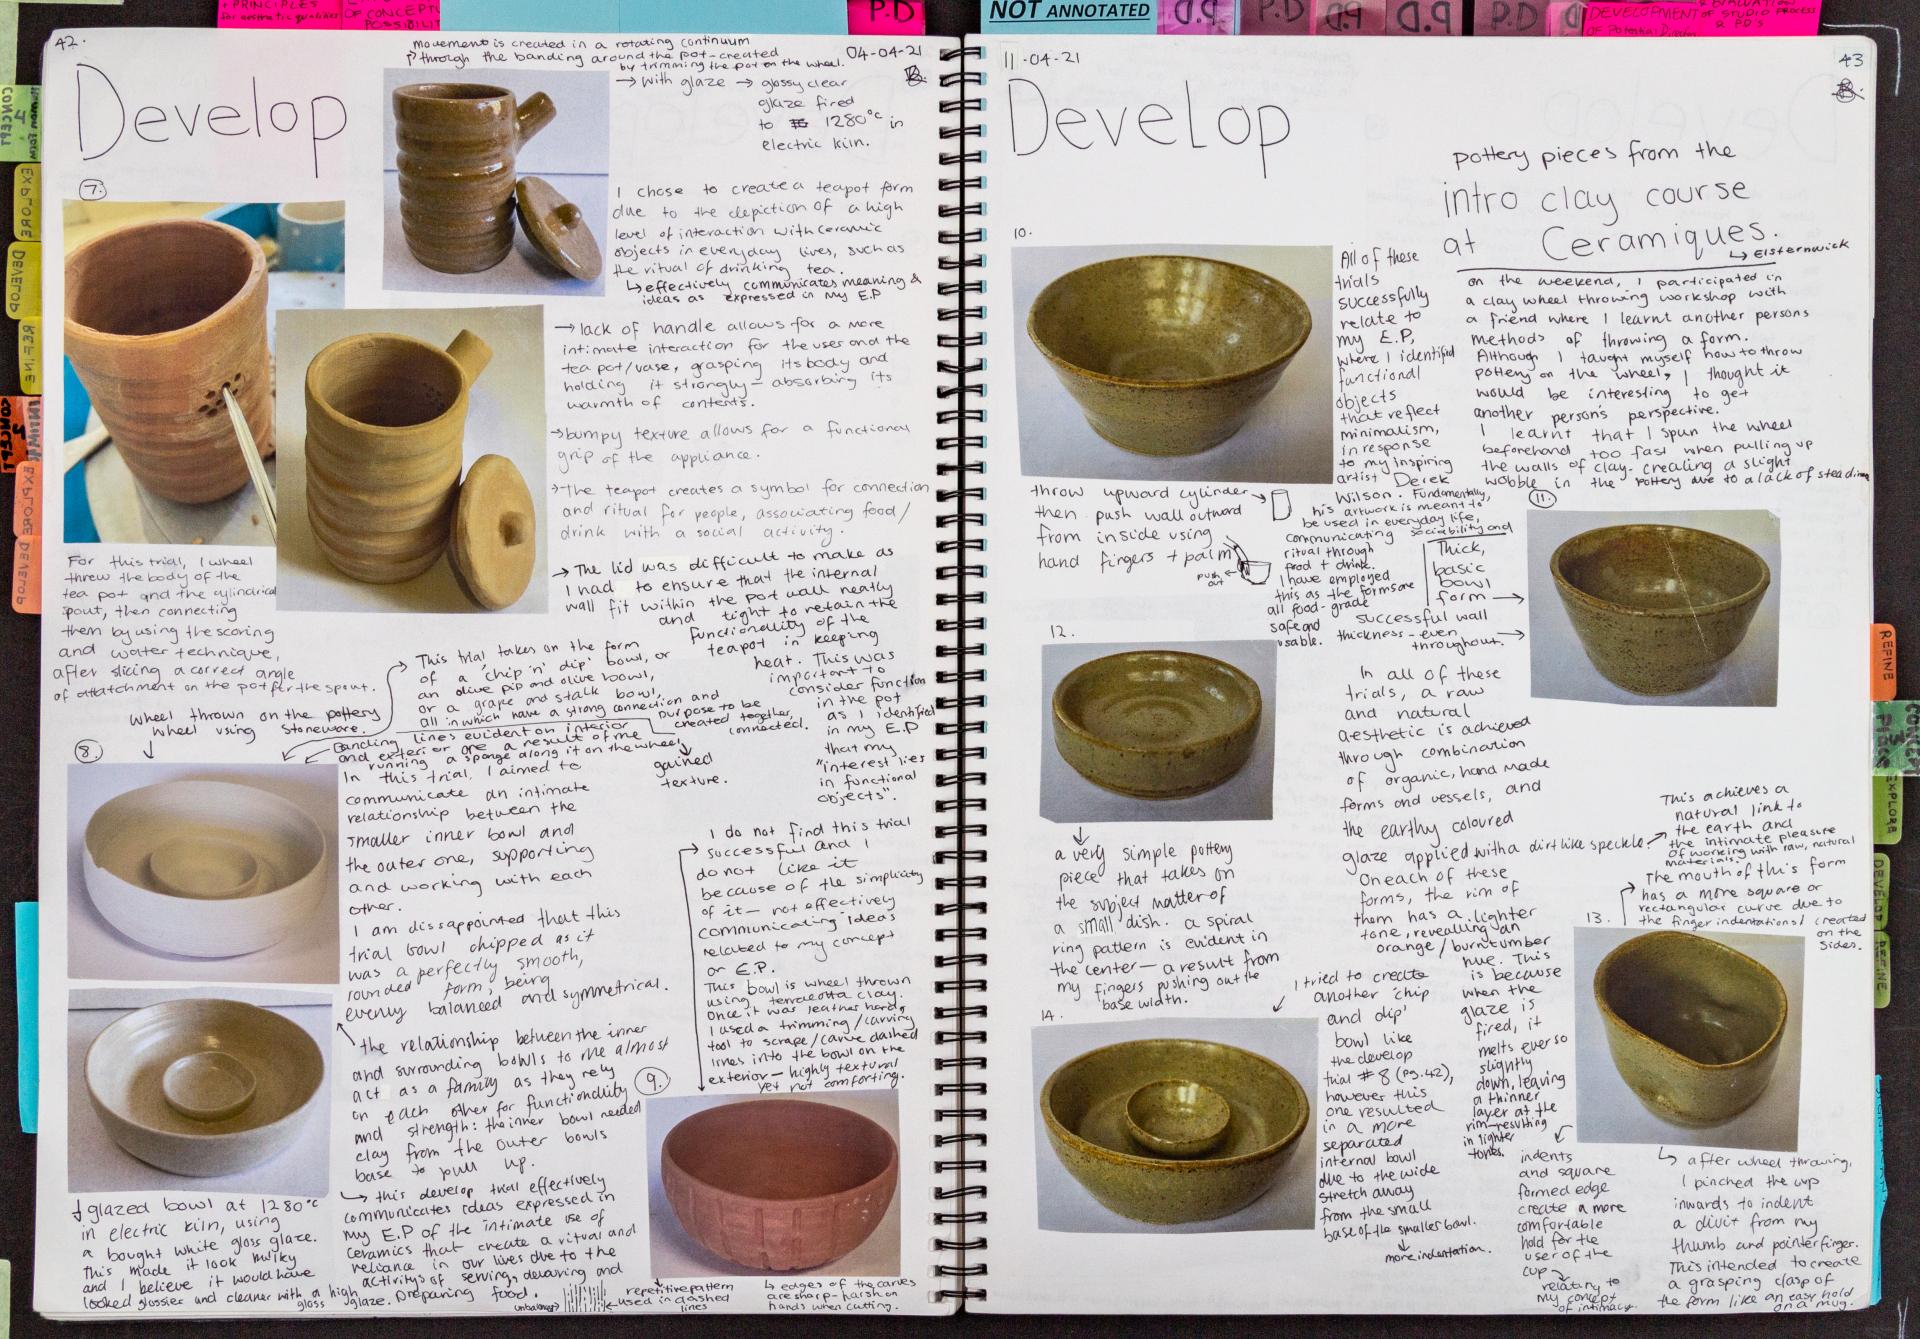 + PRINCIPLES
for aesthetic qualities
OF CONCEPT
POSSIBILIT
P.D
NOT ANNOTATED
P.D
P.D
P.D
P.D
DEVELOPMENT OF STUDIO PROCESS
& PD's
OF Potential Direction
CONCEPT
EXPLORE
DEVELOP
REFINE
CONCEPT
EXPLORE
DEVELOP
42.
Movement is created in a rotating continuum
through the banding around the pot-created
by trimming the pot on the wheel.
04-04-21
Develop
→ with glaze → glossy clear
glaze fired
to 1280°c in
electric kiln.
7.
I chose to create a teapot form
due to the depiction of a high
level of interaction with ceramic
objects in everyday lives, such as
the ritual of drinking tea.
↳ effectively communicates meaning &
ideas as expressed in my E.P
→ lack of handle allows for a more
intimate interaction for the user and the
tea pot/vase, grasping its body and
holding it strongly - absorbing its
warmth of contents.
→ bumpy texture allows for a functional
grip of the appliance.
→ the teapot creates a symbol for connection
and ritual for people, associating food/
drink with a social activity.
→ The lid was difficult to make as
I had to ensure that the internal
wall fit within the pot wall neatly
and tight to retain the
functionality of the
teapot in keeping
heat. This was
important to
consider function
in the pot
as I identified
in my E.P
that my
"interest lies
in functional
objects".
For this trial, I wheel
threw the body of the
tea pot and the cylindrical
spout, then connecting
them by using the scoring
and water technique,
after slicing a correct angle
of attatchment on the pot for the spout.
This trial takes on the form
of a 'chip 'n' dip' bowl, or
an olive pip and olive bowl,
or a grape and stalk bowl,
all in which have a strong connection and
purpose to be
created together,
connected.
wheel thrown on the pottery
wheel using Stoneware.
Banding lines evident on interior
and exterior are a result of me
running a sponge along it on the wheel
gained
texture.
8.
In this trial, I aimed to
communicate an intimate
relationship between the
smaller inner bowl and
the outer one, supporting
and working with each
other.
I am dissappointed that this
trial bowl chipped as it
was a perfectly smooth,
rounded form, being
evenly balanced and symmetrical.
the relationship between the inner
and surrounding bowls to me almost
act as a family as they rely
on each other for functionality
and strength: the inner bowl needed
clay from the outer bowls
base to pull up.
↳ this develop trial effectively
communicates ideas expressed in
my E.P of the intimate use of
ceramics that create a ritual and
reliance in our lives due to the
activitys of serving, devouring and
preparing food.
glazed bowl at 1280°c
in electric kiln, using
a bought white gloss glaze.
This made it look milky
and I believe it would have
looked glossier and cleaner with a high
gloss glaze.
I do not find this trial
successful and I
do not like it
because of the simplicity
of it - not effectively
communicating ideas
related to my concept
or E.P.
This bowl is wheel thrown
using terracotta clay.
Once it was leather hard,
I used a trimming/carving
tool to scrape/carve dashed
lines into the bowl on the
exterior - highly textural
yet not comforting.
9.
unbalanced
repetitive pattern
used in dashed
lines
↳ edges of the carves
are sharp-harsh on
hands when cutting.
11-04-21
43
Develop
pottery pieces from the
intro clay course
at Ceramiques.
↳ Elsternwick
10.
All of these
trials
successfully
relate to
my E.P,
where I identified
functional
objects
that reflect
minimalism,
in response
to my inspiring
artist Derek
Wilson. Fundamentally,
his artwork is meant to
be used in everyday life,
communicating sociability and
ritual through
food + drink.
I have employed
this as the forms are
all food-grade
safe and
usable.
on the weekend, I participated in
a clay wheel throwing workshop with
a friend where I learnt another persons
methods of throwing a form.
Although I taught myself how to throw
pottery on the wheel, I thought it
would be interesting to get
another person's perspective.
I learnt that I spun the wheel
beforehand too fast when pulling up
the walls of clay-creating a slight
wobble in the pottery due to a lack of steadiness
throw upward cylinder
then push wall outward
from inside using
hand fingers + palm
push
out
11.
Thick,
basic
bowl
form
successful wall
thickness - even
throughout.
12.
a very simple pottery
piece that takes on
the subject matter of
a small dish. a spiral
ring pattern is evident in
the center - a result from
my fingers pushing out the
base width.
In all of these
trials, a raw
and natural
aesthetic is achieved
through combination
of organic, hand made
forms and vessels, and
the earthy coloured
glaze applied with a dirt like speckle
This achieves a
natural link to
the earth and
the intimate pleasure
of working with raw, natural
materials.
On each of these
forms, the rim of
them has a lighter
tone, revealling an
orange/burnt umber
hue. This
is because
when the
glaze is
fired, it
melts ever so
slightly
down, leaving
a thinner
layer at the
rim-resulting
in lighter
tones.
13.
The mouth of this form
has a more square or
rectangular curve due to
the finger indentations created
on the
sides.
14.
I tried to create
another 'chip
and dip'
bowl like
the develop
trial #8 (pg.42),
however this
one resulted
in a more
separated
internal bowl
due to the wide
stretch away
from the small
base of the smaller bowl.
more indentation.
indents
and square
formed edge
create a more
comfortable
hold for the
user of the
cup
relating to
my concept
of intimacy.
↳ after wheel throwing,
I pinched the cup
inwards to indent
a divit from my
thumb and pointer finger.
This intended to create
a grasping clasp of
the form like an easy hold
on a mug.
REFINE
EXPLORE
DEVELOP
REFINE